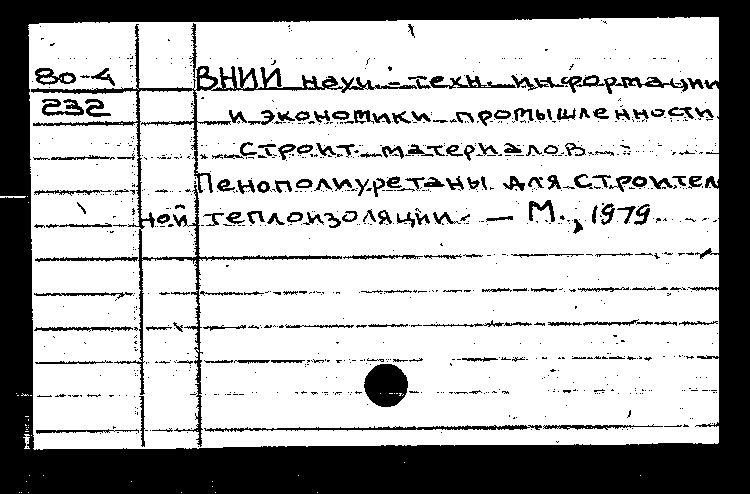 80-4 ВНИИ науч.-техн. информации
232 и экономики промышленности
строит. материалов
Пенополиуретаны для строител
ной теплоизоляции. — М., 1979.